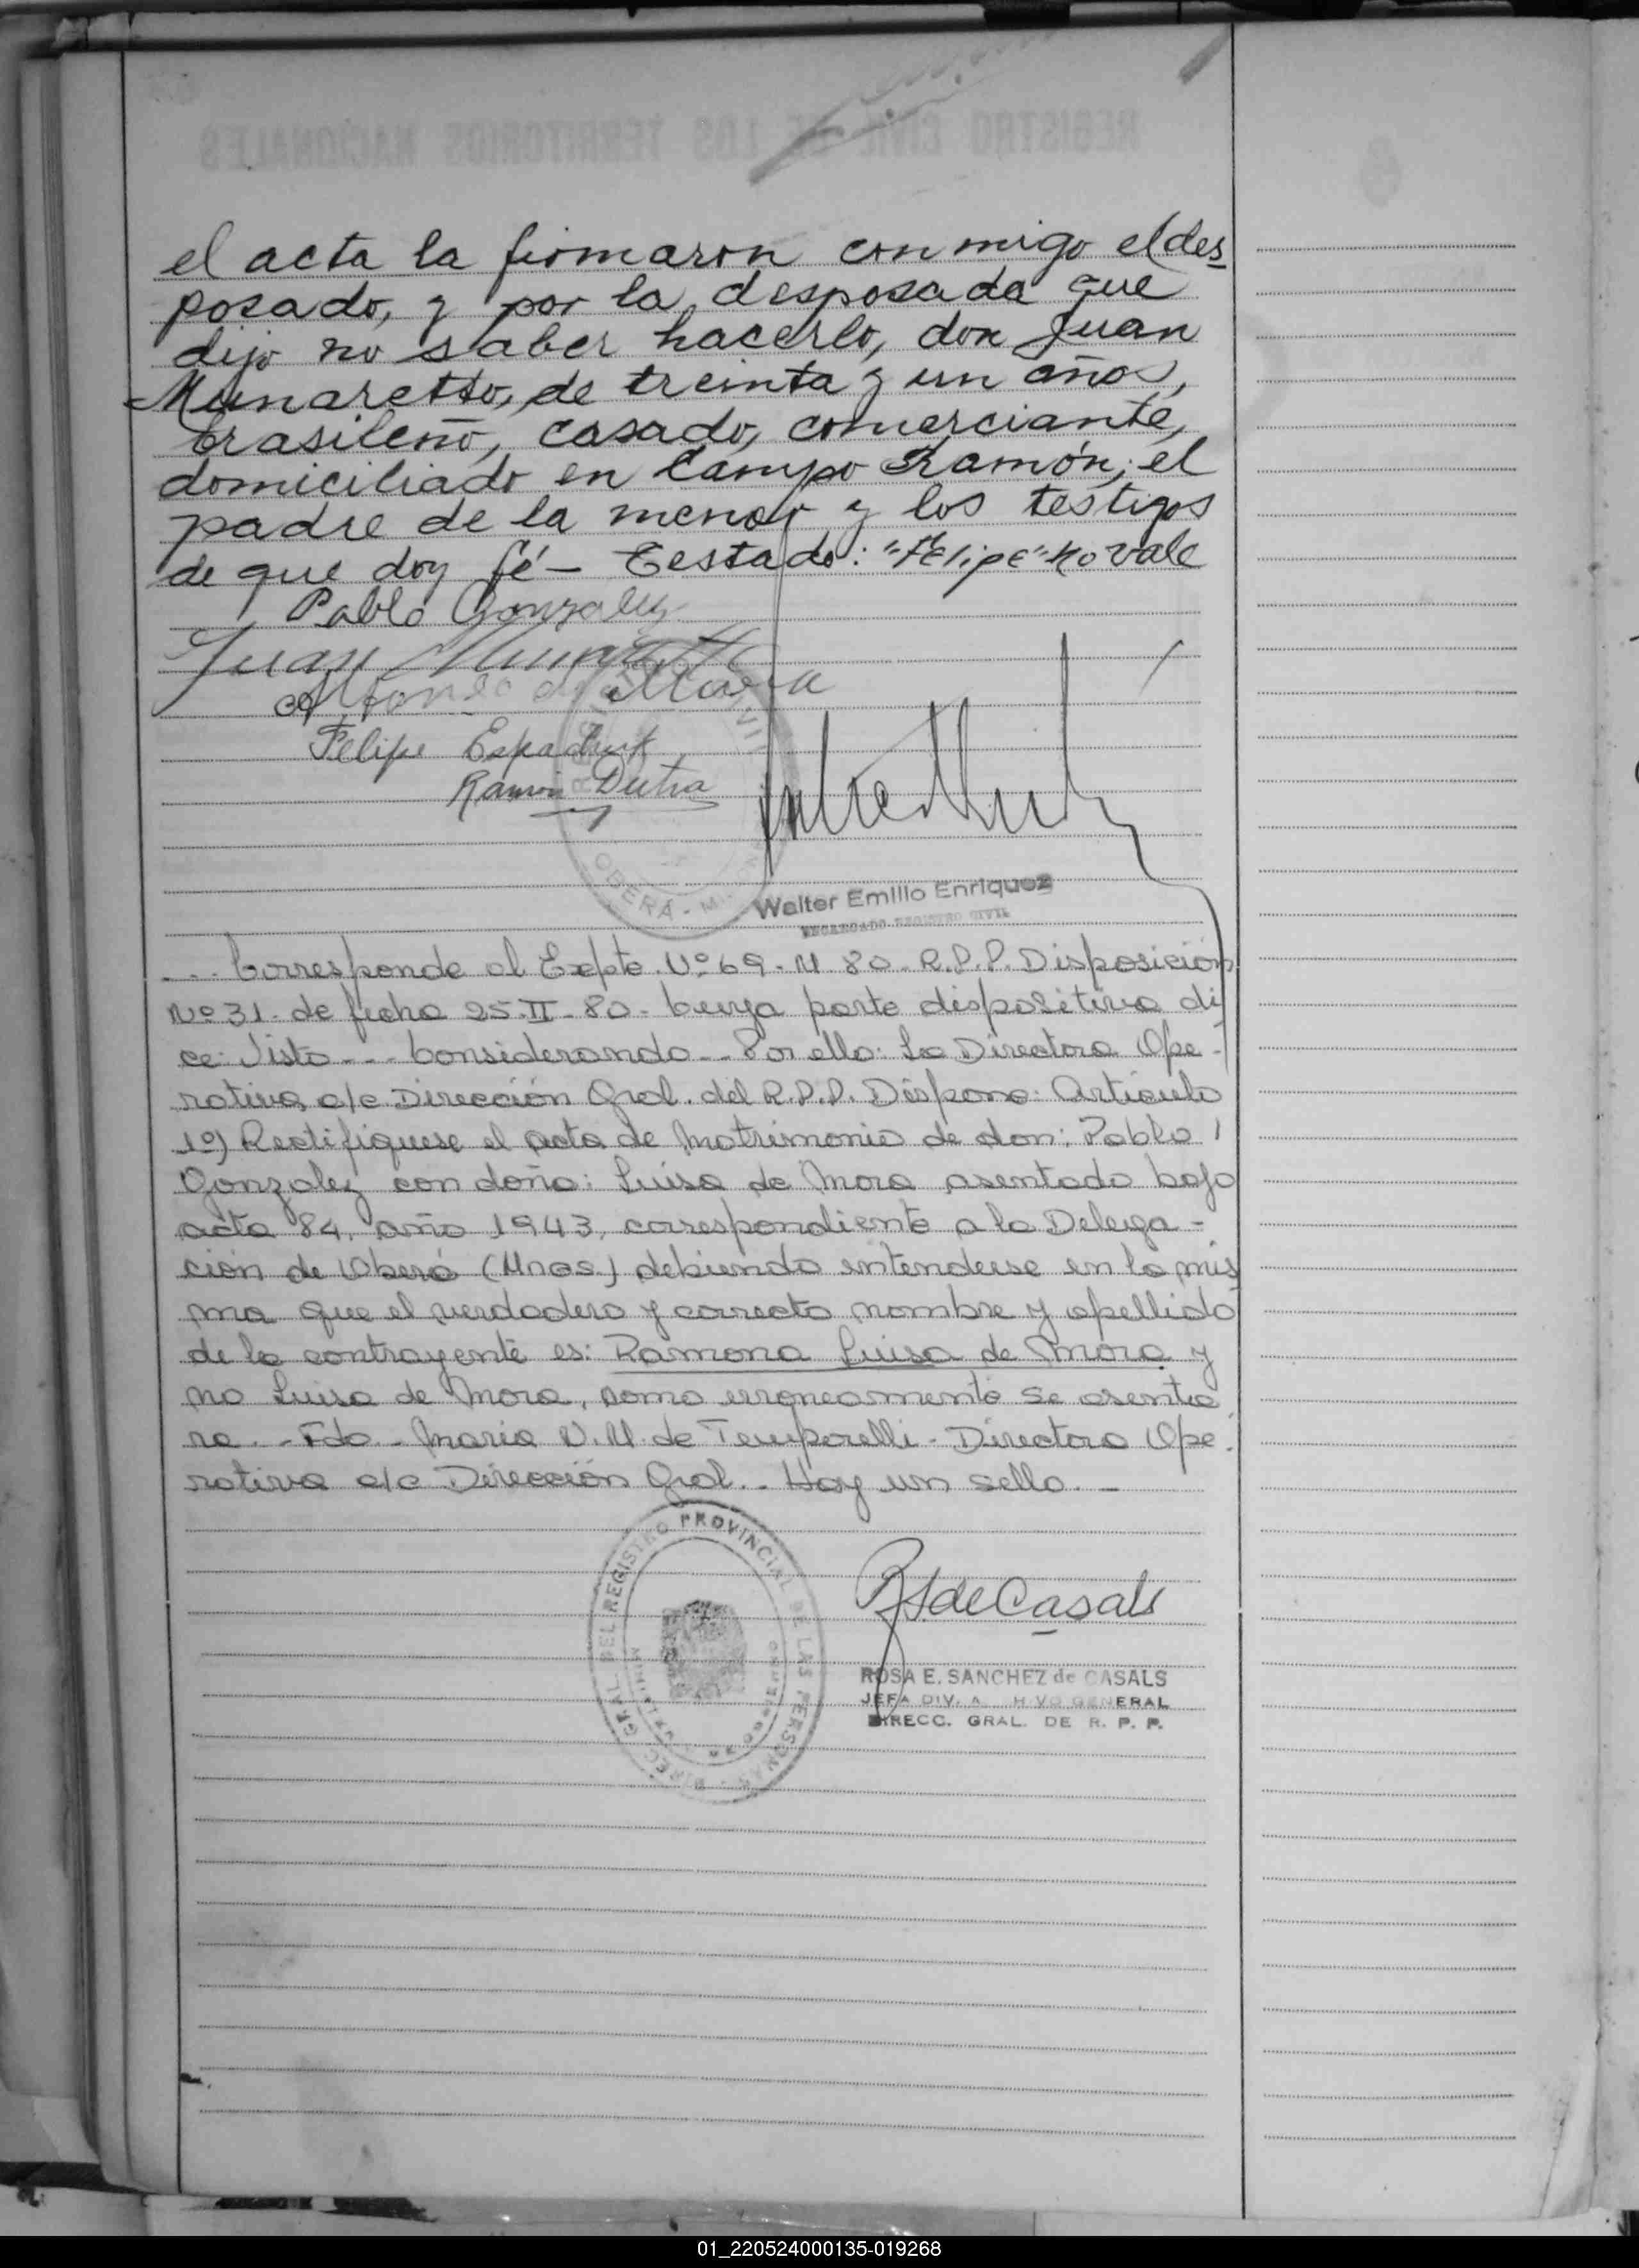 el acta la firmaron conmigo el des
posado, y por la desposada que
dijo no saber hacerlo, don Juan
Munaretto, de treinta y un años,
brasileño, casado, comerciante,
domiciliado en Campo Ramón; el
padre de la menor y los testigos
de que doy fé - Testado: "Felipe" no vale
Pablo Gonzalez
Juan Munaretto
Alfonso de Mora
Felipe
Ramon Dutra
OBERÁ - M
Walter Emilio Enriquez
ENCARGADO REGISTRO CIVIL
--- Corresponde al Expte. Nº 69 - M 80 - R.P.P. Disposición
Nº 31 - de fecha 25-II-80 - cuya parte dispositiva di
ce: Visto --- Considerando -- Por ello: La Directora Ope-
rativa a/c Dirección Gral. del R.P.P. Dispone: Artículo
1º) Rectifíquese el acta de Matrimonio de don: Pablo
Gonzalez con doña: Luisa de Mora asentada bajo
acta 84, año 1943, correspondiente a la Delega-
ción de Oberá (Mnes.) debiendo entenderse en la mis
ma que el verdadero y correcto nombre y apellido
de la contrayente es: Ramona Luisa de Mora y
no Luisa de Mora, como erroneamente se asenta
ra. - Fdo - Maria V. M. de Temporelli - Directora Ope-
rativa a/c Dirección Gral. - Hay un sello. -
DIREC. GRAL. DEL REGISTRO PROVINCIAL DE LAS PERSONAS
R S de Casals
ROSA E. SANCHEZ de CASALS
JEFA DIV. A H VO GENERAL
DIRECC. GRAL. DE R. P. P.
REGISTRO CIVIL DE LOS TERRITORIOS NACIONALES
01_220524000135-019268